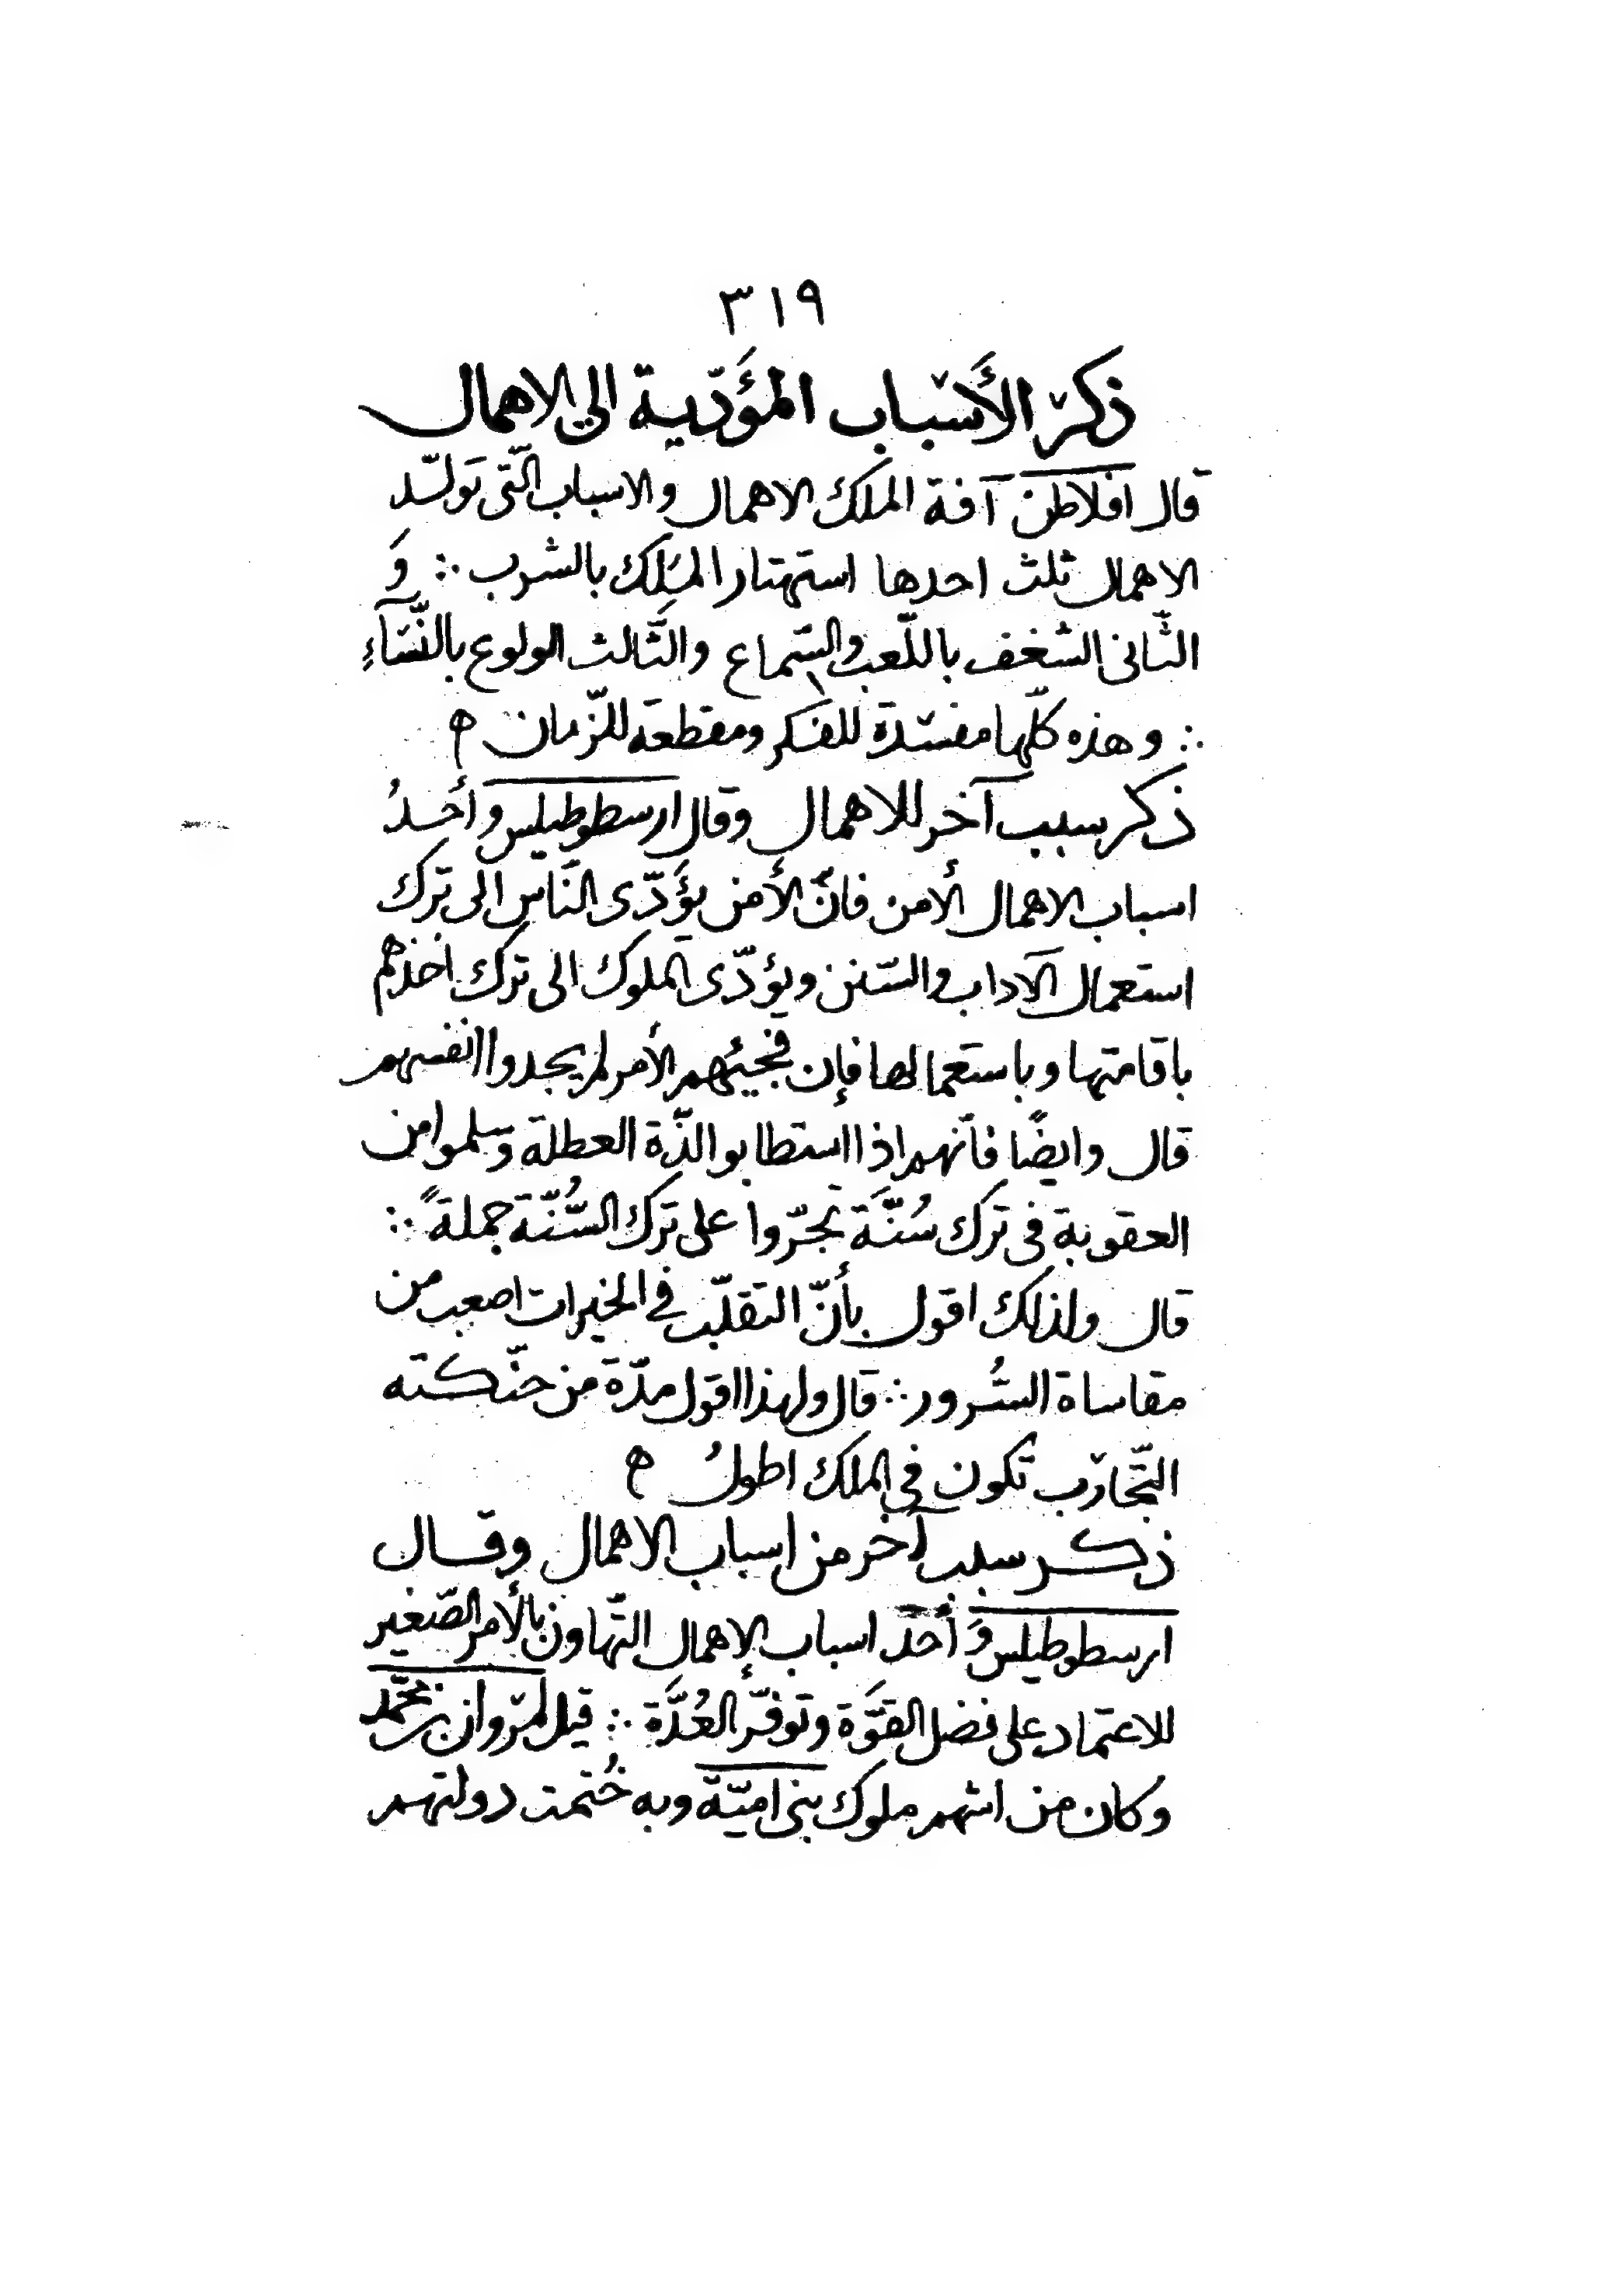 ٣١٩
ذكر الأسباب المؤَدّية الى الاهمال
قال افلاطن آفة الملك الاهمال والاسباب الّتى تَولّد
الاهمال ثلث احدها استهتار المَلِك بالشرب ∴ وَ
الثّانى الشغف باللّعب والسّماع والثَّالث الولوع بالنّسَآءِ
∴ وهذه كلّها مفسدة للفكر ومقطعة للزّمان ه
ذكر سبب آخر للاهمال وقال ارسطوطيلس وأَحدُ
اسباب الاهمال الأمن فانّ الأمن يؤَدّى النّاس الى ترك
استعمال الآداب والسّنن ويؤدّى الملوك الى ترك اخذهم
باقامتها وباستعمالها فإن فجيئهم الأمر لم يجدوا انفسهم
قال وايضًا فانّهم اذا استطابوا لذّة العطلة وسلموا من
العقوبة فى ترك سُنَّة تجرّوا على ترك السُّنّة جملةً ∴
قال ولذلك اقول بأنّ التقلّب فى الخيرات اصعب من
مقاساة الشُرور ∴ قال ولهذا اقول مدّة من حنّكته
التّجارب تكون فى الملك اطولُ ه
ذكر سبب آخر من اسباب الاهمال وقال
ارسطوطيلس وَأَحَد اسباب الإهمال التّهاون بالأمر الصّغير
للاعتماد على فضل القوَّة وتوفّر العُدَّة ∴ قيل لمروان بن محمّد
وكان من اشهم ملوك بنى اميّة وبه خُتمت دولتهم